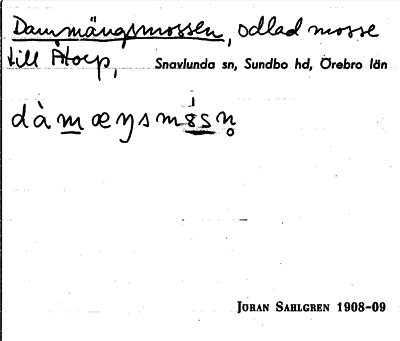 Dammängsmossen, odlad mosse
till Åtorp, Snavlunda sn, Sundbo hd, Örebro län
dàmæŋsmȯsn̥
JÖRAN SAHLGREN 1908-09